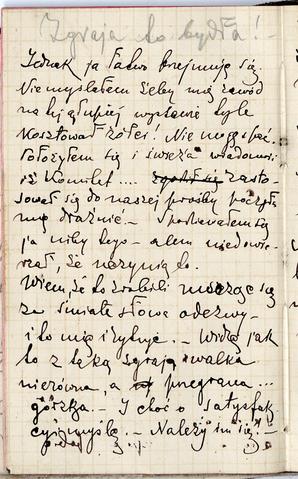 Zgraja to bydła! –
Jednak ja łatwo przejmuję się.
Nie myślałem żeby mię zawód
na tej głupiej wystawie tyle
kosztował żółci! Nie mogę spać.
Położyłem się i świeża wiadomość
iż Komitet .... zgodził się zasto-
sował się do naszej prośby poczęła
mię drażnić – Spodziewałem się
ja niby tego – alem niedowie-
rzał, że uczynią to.
Wiem, że to zrobili mszcząc się
za śmiałe słowa odezwy –
i to mię irytuje. – Widzę jak
to z tą zgrają walka
nierówna, a przegrana ...
gorzka. – I choć o satysfak-
cyi myślę. – Należy im się! –